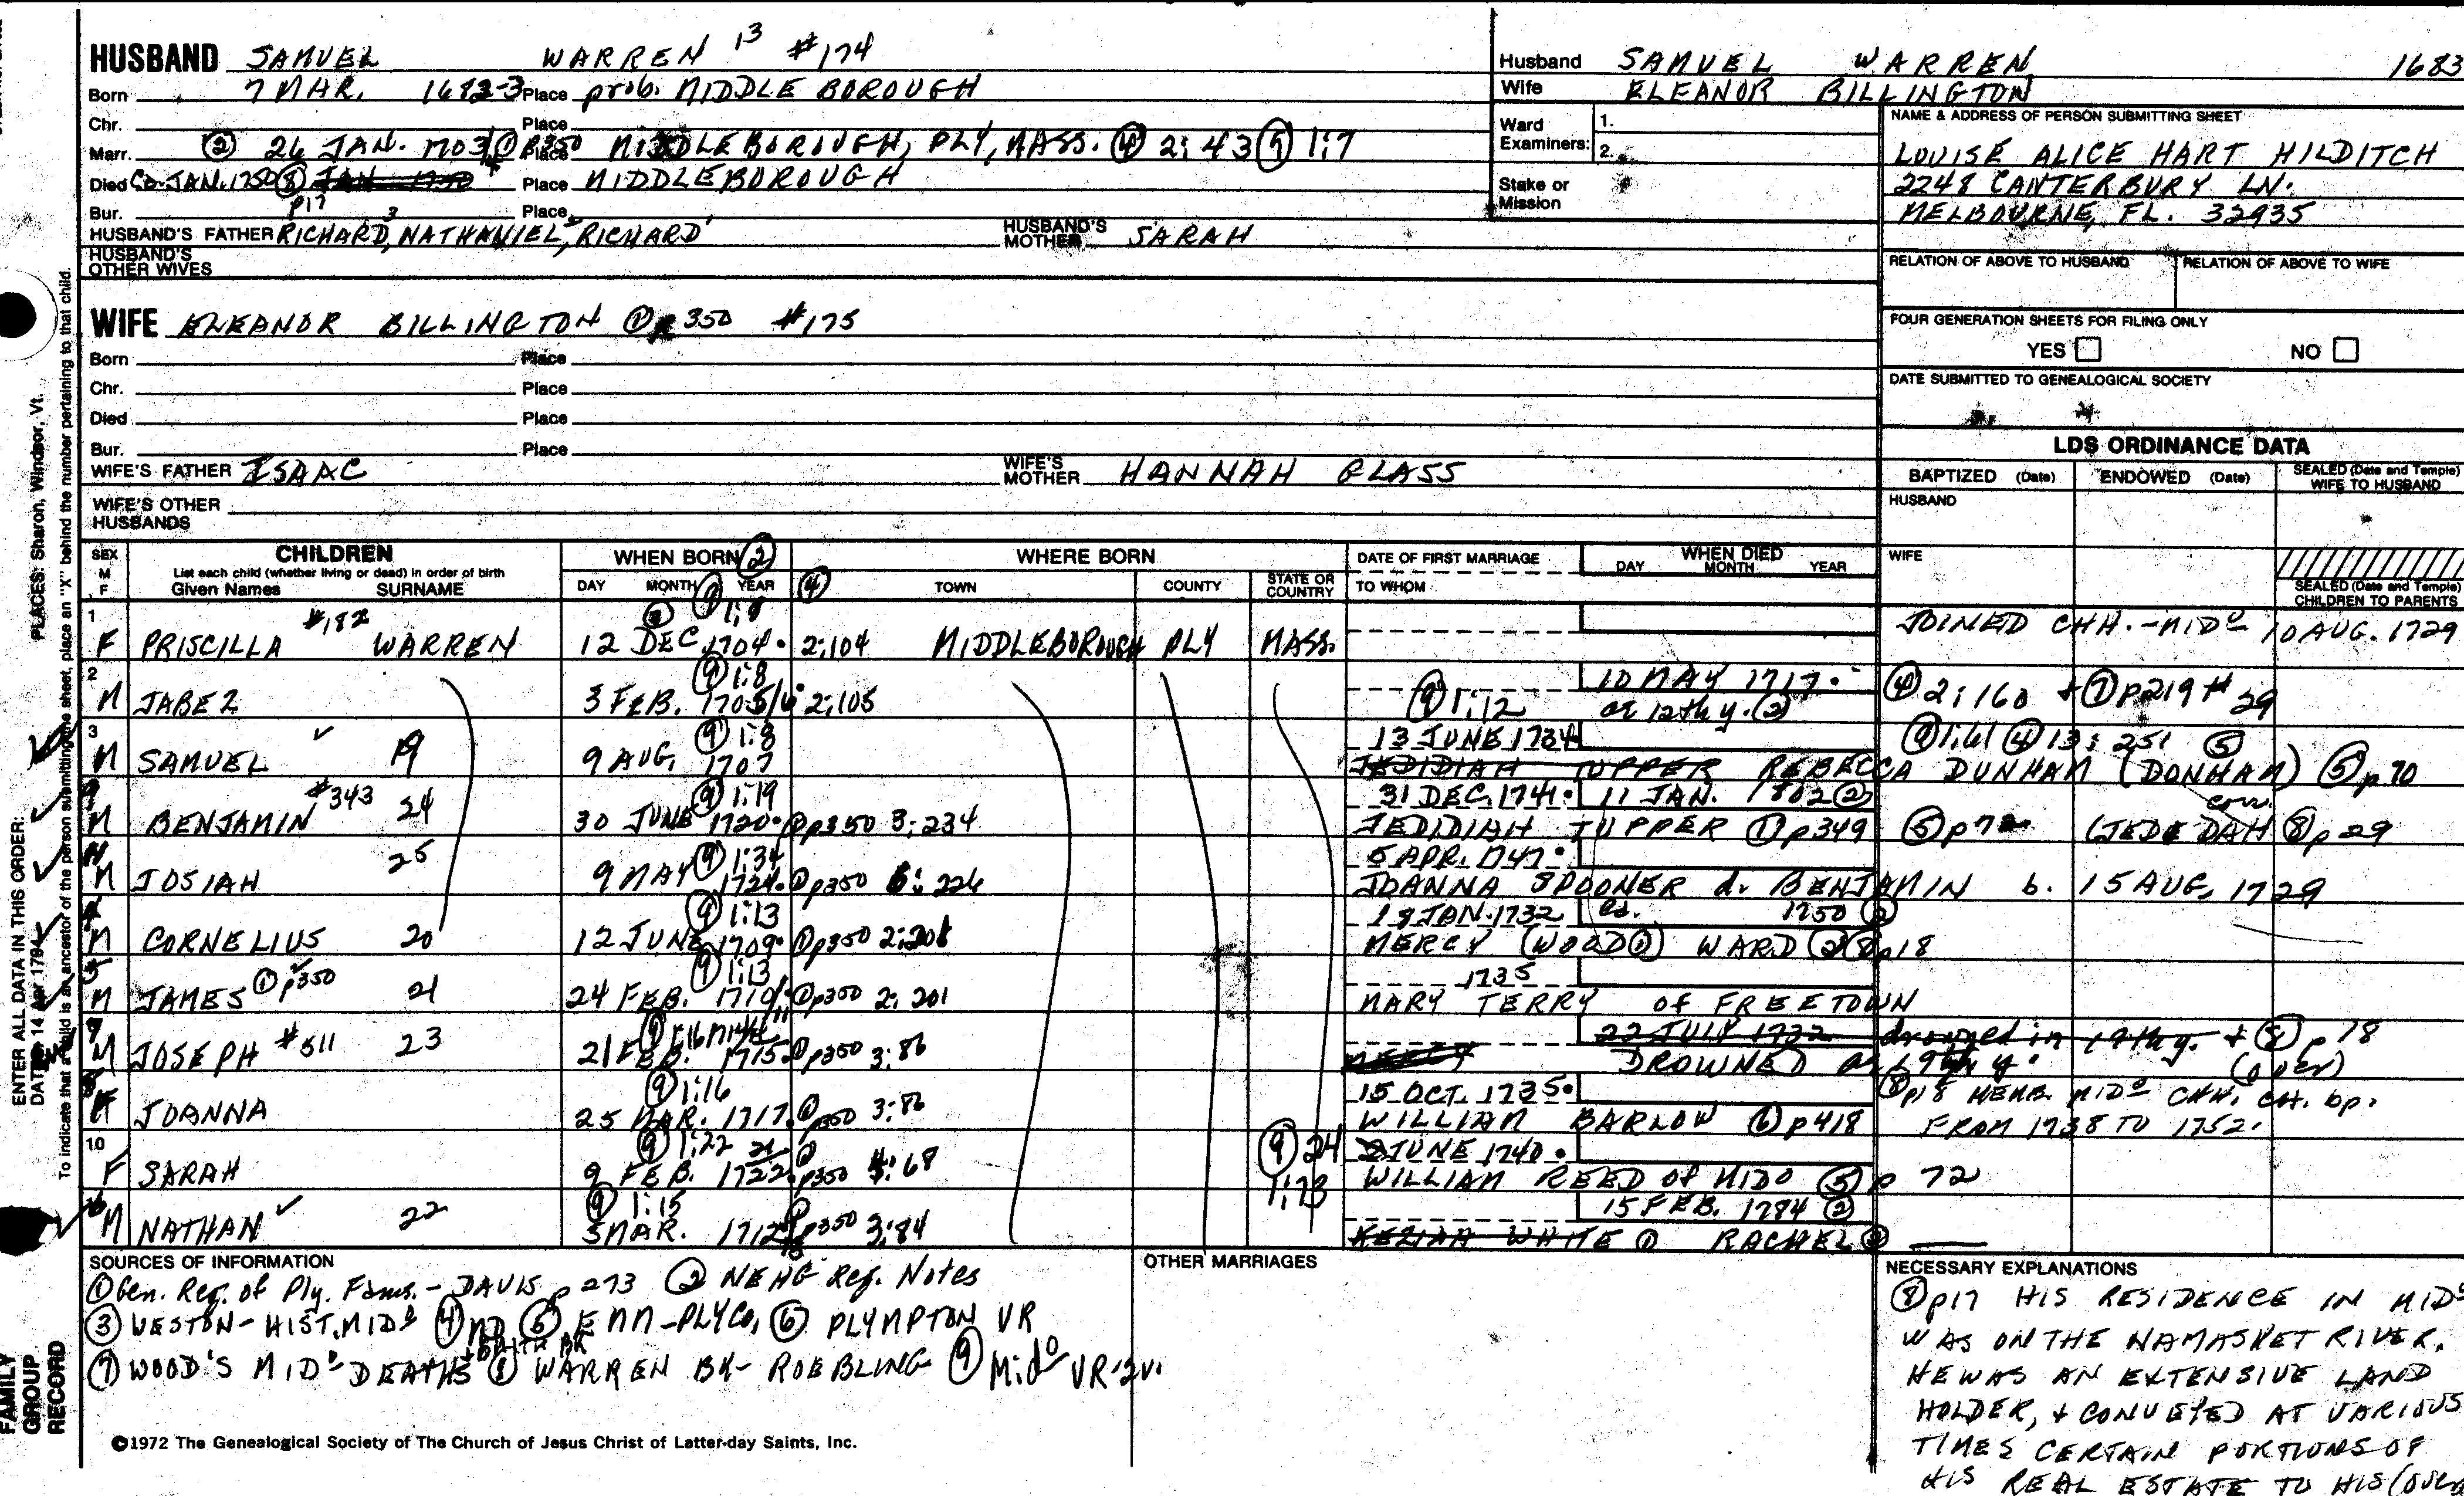 HUSBAND SAMUEL WARREN 13 #174
Born 7 MAR. 1682-3 Place prob. MIDDLE BOROUGH
Chr. Place
Marr. ② 26 JAN. 1703/4 ① P350 Place MIDDLEBOROUGH, PLY, MASS. ④ 2:43 ⑤ 1:7
Died Ca. JAN. 1750 ⑧ p17 JAN 1750 Place MIDDLEBOROUGH
Bur. Place
HUSBAND'S FATHER RICHARD,3 NATHANIEL,2 RICHARD1 HUSBAND'S MOTHER SARAH
HUSBAND'S OTHER WIVES
WIFE ELEANOR BILLINGTON ① p 350 #175
Born Place
Chr. Place
Died Place
Bur. Place
WIFE'S FATHER ISAAC WIFE'S MOTHER HANNAH GLASS
WIFE'S OTHER HUSBANDS
Husband SAMUEL WARREN 1683
Wife ELEANOR BILLINGTON
Ward Examiners: 1.
2.
Stake or Mission
NAME & ADDRESS OF PERSON SUBMITTING SHEET
LOUISE ALICE HART HILDITCH
2248 CANTERBURY LN.
MELBOURNE, FL. 32935
RELATION OF ABOVE TO HUSBAND RELATION OF ABOVE TO WIFE
FOUR GENERATION SHEETS FOR FILING ONLY
YES NO
DATE SUBMITTED TO GENEALOGICAL SOCIETY
LDS ORDINANCE DATA
BAPTIZED (Date) ENDOWED (Date) SEALED (Date and Temple) WIFE TO HUSBAND
HUSBAND
WIFE
SEALED (Date and Temple) CHILDREN TO PARENTS
SEX M F CHILDREN WHEN BORN ② WHERE BORN DATE OF FIRST MARRIAGE WHEN DIED
List each child (whether living or dead) in order of birth
Given Names SURNAME DAY MONTH YEAR ④ TOWN COUNTY STATE OR COUNTRY TO WHOM DAY MONTH YEAR
1 F PRISCILLA #182 WARREN 12 DEC. 1704. 2:104 MIDDLEBOROUGH PLY MASS. JOINED CHH. - MIDO 10 AUG. 1729
2 M JABEZ ⑨ 1:8 3 FEB. 1705/6 2:105 10 MAY 1717. ae 12th y. ② ④ 2:160 + ⑦ p219 # 29
3 M SAMUEL 19 ⑨ 1:8 9 AUG. 1707 ⑨ 1:12 13 JUNE 1734 ④ 13:251 ⑤
JEDIDIAH TUPPER REBECCA DUNHAM (DONHAM) ⑤ p 70
M BENJAMIN #343 24 ⑨ 1:19 30 JUNE 1720. ① p350 3:234 31 DEC. 1741. 11 JAN. 1802 ②
JEDIDIAH TUPPER ① p349 ⑤ p72 (JEDEDAH ⑧ p 29
M JOSIAH 25 ⑨ 1:34 9 MAY 1724. ① p350 6:226 5 APR. 1747.
JOANNA SPOONER d. BENJAMIN b. 15 AUG. 1729
M CORNELIUS 20 ⑨ 1:13 12 JUNE 1709. ① p350 2:201 18 JAN. 1732 1750 ②
MERCY (WOOD ①) WARD ② ⑧ p18
5 M JAMES ① p350 21 ⑨ 1:13 24 FEB. 1710/11 ① p350 2:201 1735
MARY TERRY of FREETOWN
M JOSEPH #511 23 21 FEB. 1715. ① p350 3:86 22 JULY 1732 drowned in 19th y. + ⑧ p 18
MERCY DROWNED ae 19th y. (over)
F JOANNA ⑨ 1:16 25 MAR. 1717. ① p350 3:86 15 OCT. 1735.
WILLIAM BARLOW ⑥ p 418 ⑧ p18 MEMB. MIDO CHH, CH. bp. FROM 1738 TO 1752.
10 F SARAH ⑨ 1:22 9 FEB. 1722 ① p350 4:68 ⑨ 1:73 24 JUNE 1740.
WILLIAM REED of MIDO ⑤ p 72
6 M NATHAN 22 ⑨ 1:15 5 MAR. 1712 ① p350 3:84 15 FEB. 1784 ②
KEZIAH WHITE ① RACHEL ②
SOURCES OF INFORMATION
① Gen. Reg. of Ply. Fams. - DAVIS p 273 ② NEHG Reg. Notes
③ WESTON - HIST. MIDO ④ MD ⑤ EMM - PLYCO, ⑥ PLYMPTON VR
⑦ WOOD'S MIDO DEATHS ⑧ WARREN BK - ROEBLING ⑨ MidO VR 2v.
OTHER MARRIAGES
NECESSARY EXPLANATIONS
⑧ p17 HIS RESIDENCE IN MIDO
WAS ON THE NAMASKET RIVER.
HE WAS AN EXTENSIVE LAND
HOLDER, + CONVEYED AT VARIOUS
TIMES CERTAIN PORTIONS OF
HIS REAL ESTATE TO HIS (over
©1972 The Genealogical Society of The Church of Jesus Christ of Latter-day Saints, Inc.
FAMILY GROUP RECORD
ENTER ALL DATA IN THIS ORDER:
DATES: 14 Apr 1794
PLACES: Sharon, Windsor, Vt.
To indicate that a child is an ancestor of the person submitting the sheet, place an "X" behind the number pertaining to that child.